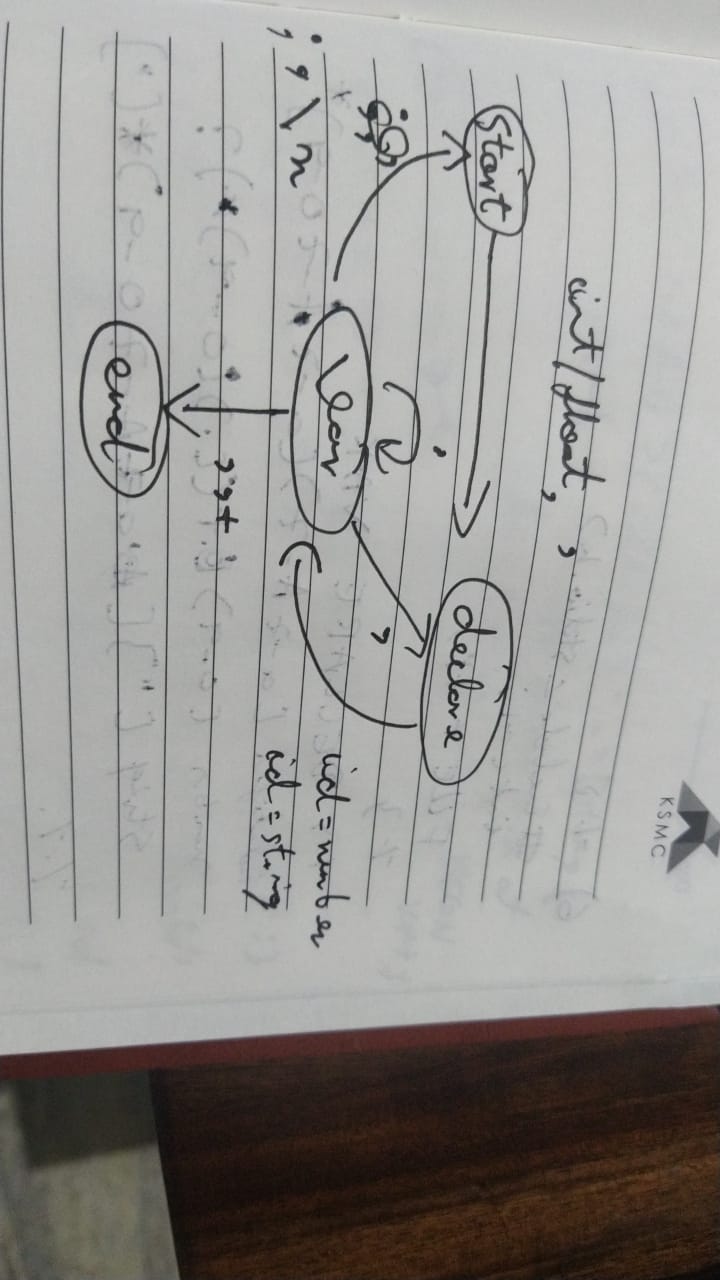 KSMC
int/float,
start
declare
,
,
var
id=number
id=string
; , \n
end